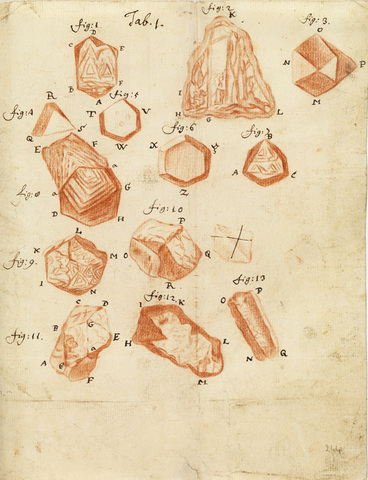 fig: 1.
Tab. 1.
fig: 2.
fig: 3.
D
C
E
B
F
A
K
I
H
G
L
O
N
P
M
fig: 4
R
Q
S
fig: 5
T
V
W
fig: 6
X
Z
fig: 7
B
A
C
fig: 8
E
F
G
D
H
fig: 9.
L
K
M
I
N
fig: 10
P
O
Q
R
fig: 11.
C
D
B
G
E
A
F
fig: 12.
I
K
H
L
M
fig: 13
O
P
N
Q